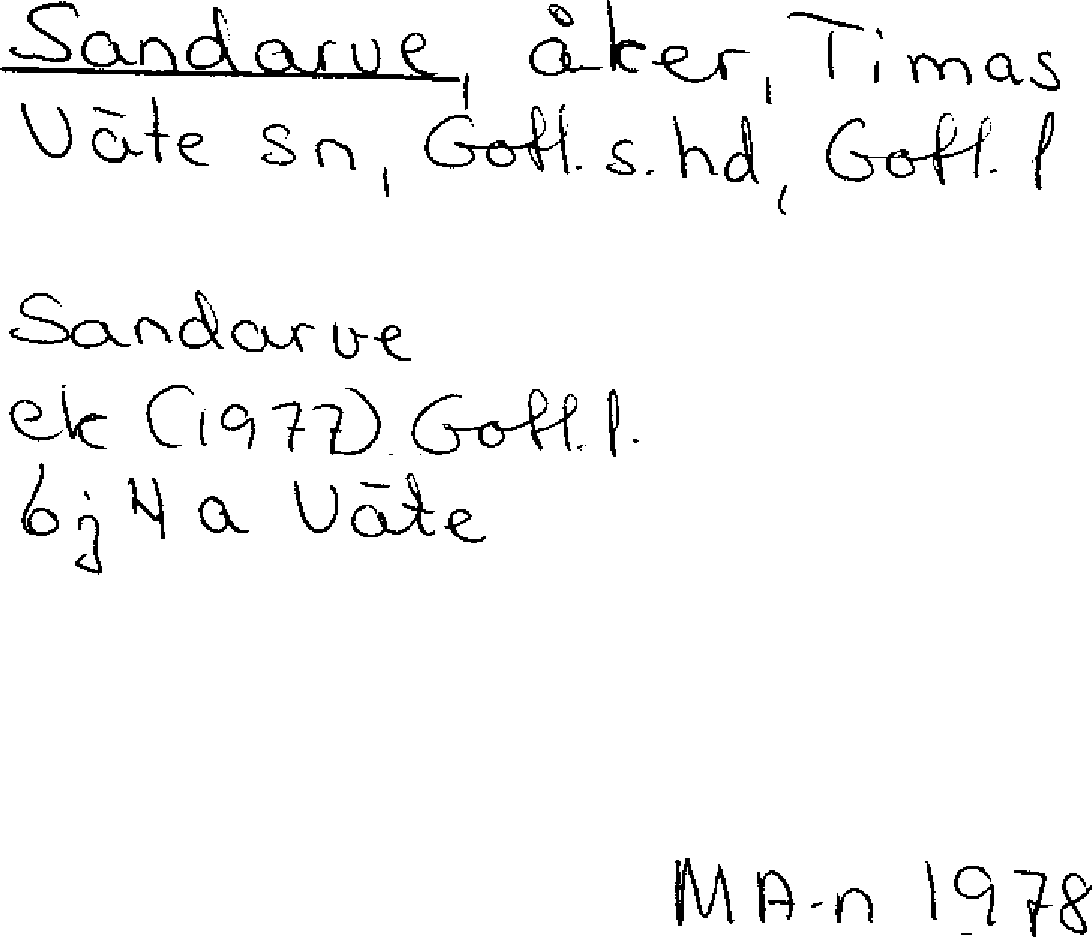 Sandarve, åker, Timas
Väte sn, Gotl. s. hd, Gotl. l
Sandarve
ek (1977) Gotl. l.
6j 4 a Väte
MA-n 1978